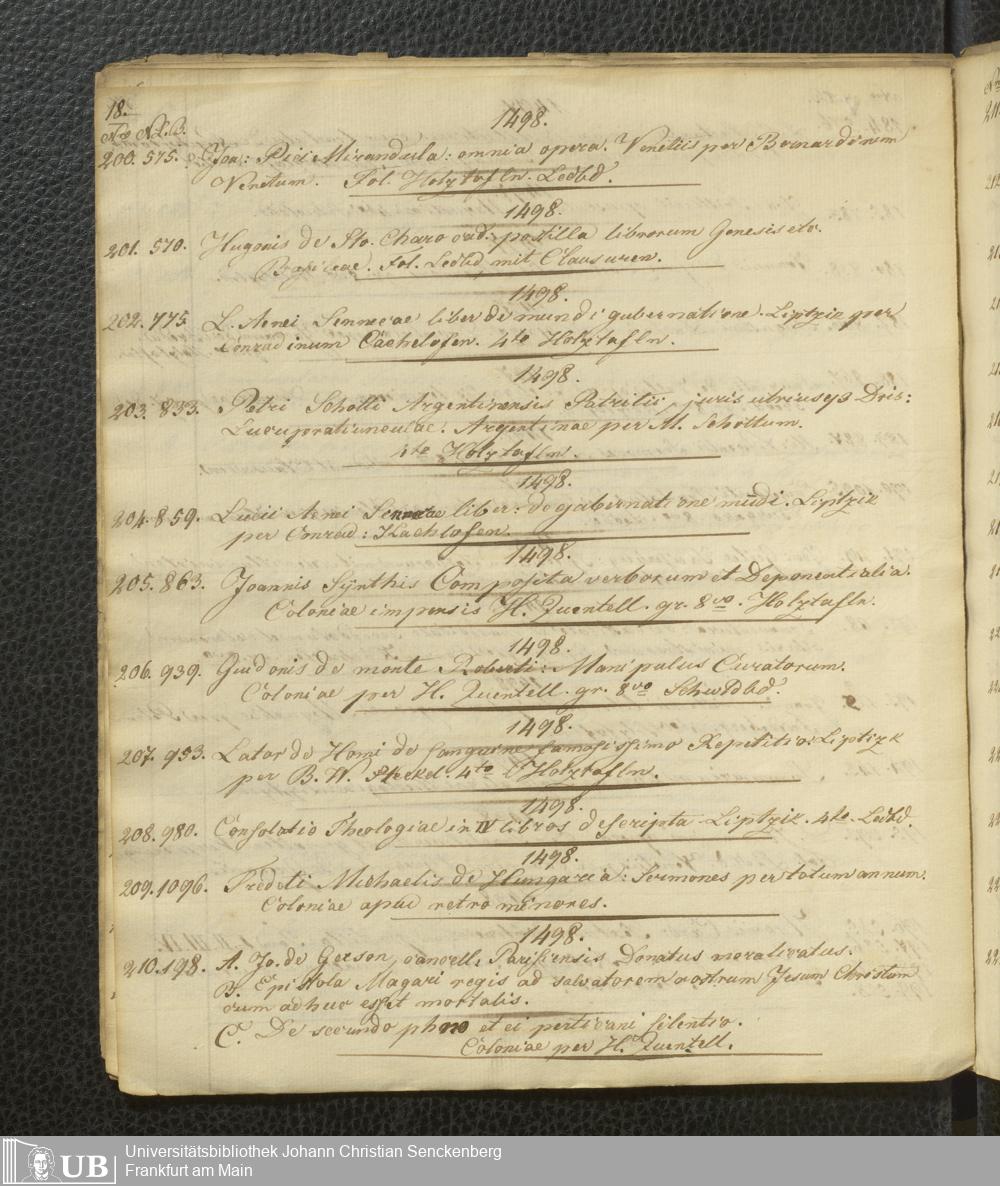 18.
Nro N.L.B.
1498.
200. 575. Joa: Pici Mirandula: omnia opera. Venetiis per Bernardinum
Venetum. Fol. Holztafln. Ledbd.
1498.
201. 570. Hugonis de Sto. Charo ord: postilla librorum Genesis etc.
Basileae. Fol. Ledbd mit Clausuren.
1498.
202. 775 L. Aenei Sennecae liber de mundi gubernatione. Liptzik per
Conradinum Cachelofen. 4to Holztafln.
1498.
203. 833. Petri Schotti Argentinensis Patritii, juris utriusqs Dris:
Lucuprationculae. Argentinae per M. Schottum.
4to Holztafln.
1498.
204. 859. Lucii Aenei Sennecae liber: de gabernatione mūdi. Liptzik
per Conrad: Kachlofen.
1498.
205. 863. Joannis Sÿnthis Composita verborum et Deponentialia.
Coloniae impensis H. Quentell. gr. 8vo. Holztafln.
1498.
206. 939. Guidonis de monte Roherti: Manipulus Curatorum.
Coloniae per H. Quentell. gr. 8vo Schwldbd.
1498.
207. 953. Lator de Homi de sanguine famosissimo Repetitio: Liptizk
per B. W. Steckel. 4to Holztafln.
1498.
208. 980. Consolatio Theologiae in IV libros descripta. Liptzik. 4to. Ledbd.
1498.
209. 1096. Fredeti Michaelis de Hungaria: Sermones per totum annum.
Coloniae apud retro minores.
1498.
210. 198. A. Jo. de Gerson, cancell, Parisiensis Donatus moralizatus.
B. Epistola Magari regis ad salvatorem nostrum Jesum Christum
cum adhuc esset mortalis.
C. De secundo phno et ei pertivani silentio.
Coloniae per H. Quentell.
Universitätsbibliothek Johann Christian Senckenberg
UB
Frankfurt am Main